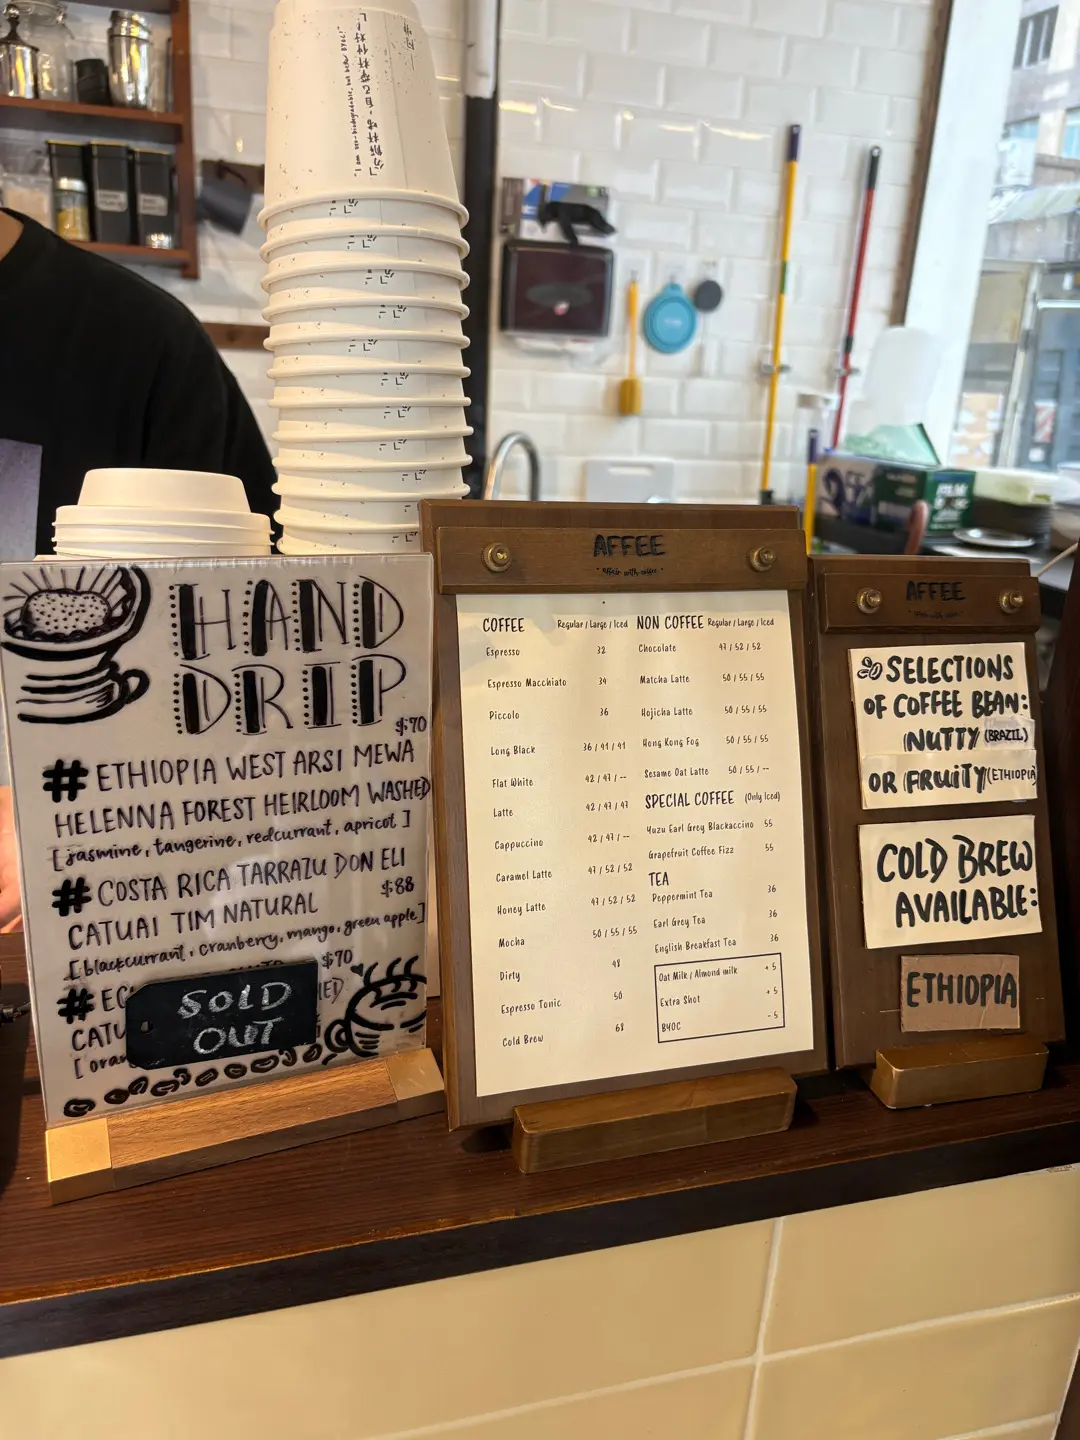 HAND
DRIP
$70
# ETHIOPIA WEST ARSI MEWA
HELENNA FOREST HEIRLOOM WASHED
[jasmine, tangerine, redcurrant, apricot]
# COSTA RICA TARRAZU DON ELI
$88
CATUAI TIM NATURAL
[blackcurrant, cranberry, mango, green apple]
$70
#
CATU
[oran
SOLD
OUT
AFFEE
COFFEE Regular / Large / Iced
Espresso 32
Espresso Macchiato 34
Piccolo 36
Long Black 36 / 41 / 41
Flat White 42 / 47 / --
Latte 42 / 47 / 47
Cappuccino 42 / 47 / --
Caramel Latte 47 / 52 / 52
Honey Latte 47 / 52 / 52
Mocha 50 / 55 / 55
Dirty 48
Espresso Tonic 50
Cold Brew 68
NON COFFEE Regular / Large / Iced
Chocolate 47 / 52 / 52
Matcha Latte 50 / 55 / 55
Hojicha Latte 50 / 55 / 55
Hong Kong Fog 50 / 55 / 55
Sesame Oat Latte 50 / 55 / --
SPECIAL COFFEE (Only Iced)
Yuzu Earl Grey Blackaccino 55
Grapefruit Coffee Fizz 55
TEA
Peppermint Tea 36
Earl Grey Tea 36
English Breakfast Tea 36
Oat Milk / Almond milk + 5
Extra Shot + 5
BYOC - 5
AFFEE
SELECTIONS
OF COFFEE BEAN:
NUTTY (BRAZIL)
OR FRUITY (ETHIOPIA)
COLD BREW
AVAILABLE:
ETHIOPIA